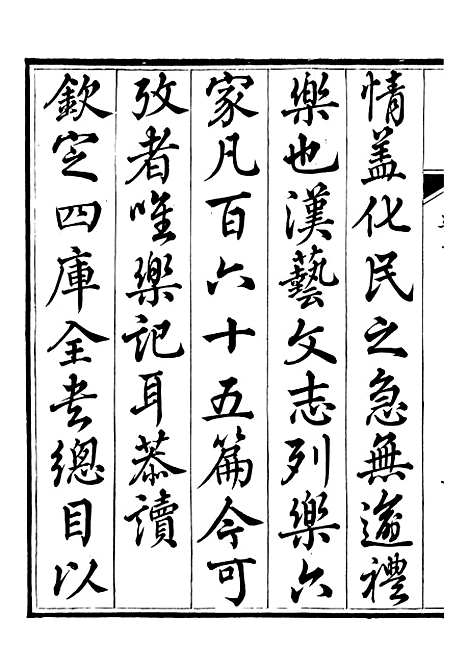 情蓋化民之急無逾禮
樂也漢藝文志列樂六
家凡百六十五篇今可
攷者唯樂記耳恭讀
欽定四庫全書總目以